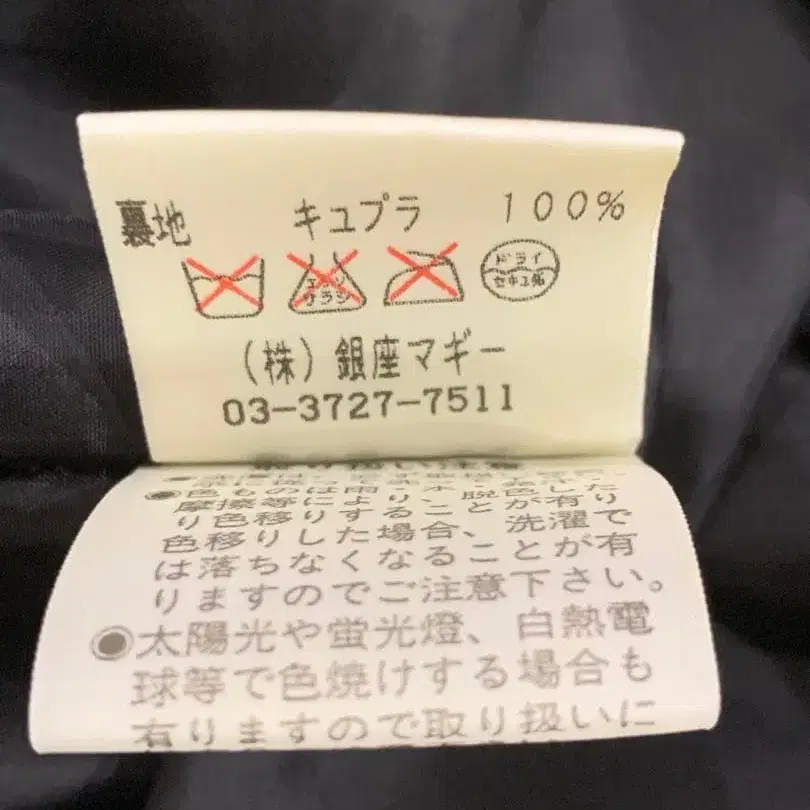 裏地 キュプラ 100%
エンソ
サラシ
ドライ
セキユ系
(株)銀座マギー
03-3727-7511
●色ものは雨・水・脱色した
摩擦等により、ことが有り
り色移りすること
色移りした場合、洗濯で
は落ちなくなることが有
りますのでご注意下さい。
◉太陽光や蛍光燈、白熱電
球等で色焼けする場合も
有りますので取り扱いに